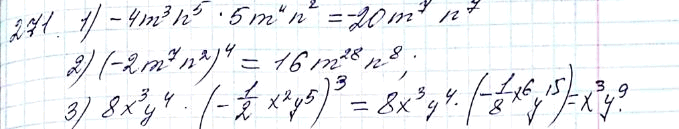 271. 1) -4m³n⁵ · 5m⁴n² = -20m⁷n⁷
2) (-2m⁷n²)⁴ = 16m²⁸n⁸;
3) 8x³y⁴ · (-1/2 x²y⁵)³ = 8x³y⁴ · (-1/8 x⁶y¹⁵) = x³y⁹.